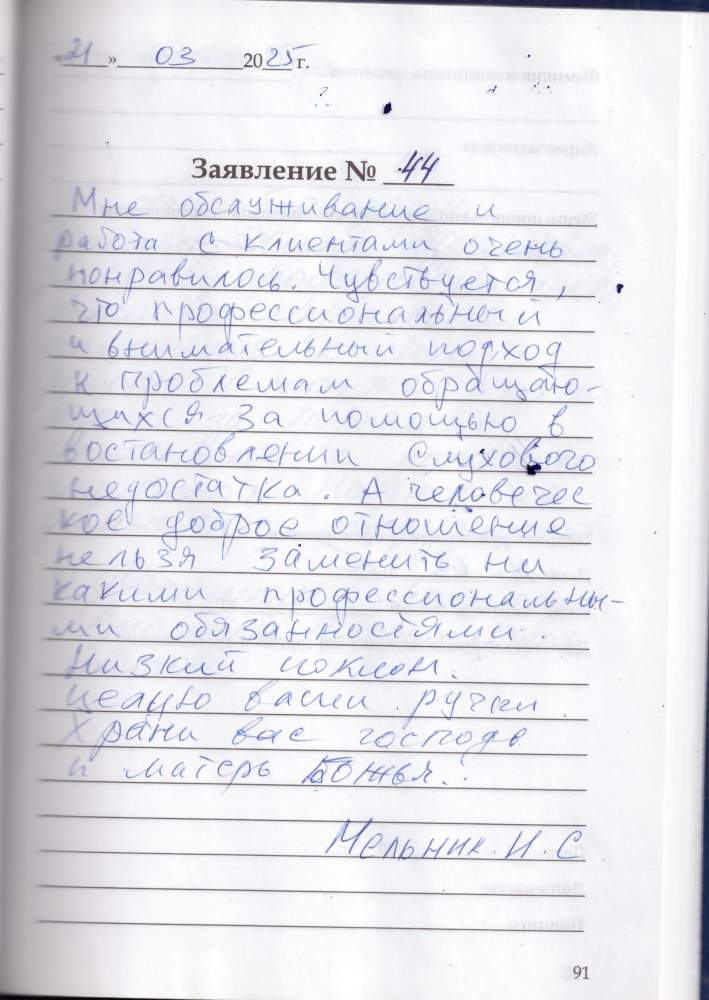 21 » 03 2025 г.
Заявление № 44
Мне обслуживание и
работа с клиентами очень
понравилось. Чувствуется,
что профессиональный
и внимательный подход
к проблемам обращаю-
щихся за помощью в
востановлении слухового
недостатка. А человечес
кое доброе отношение
нельзя заменить ни
какими профессиональны-
ми обязанностями.
Низкий поклон.
целую ваши ручки.
Храни вас господь
и матерь Божья.
Мельник. И. С
91